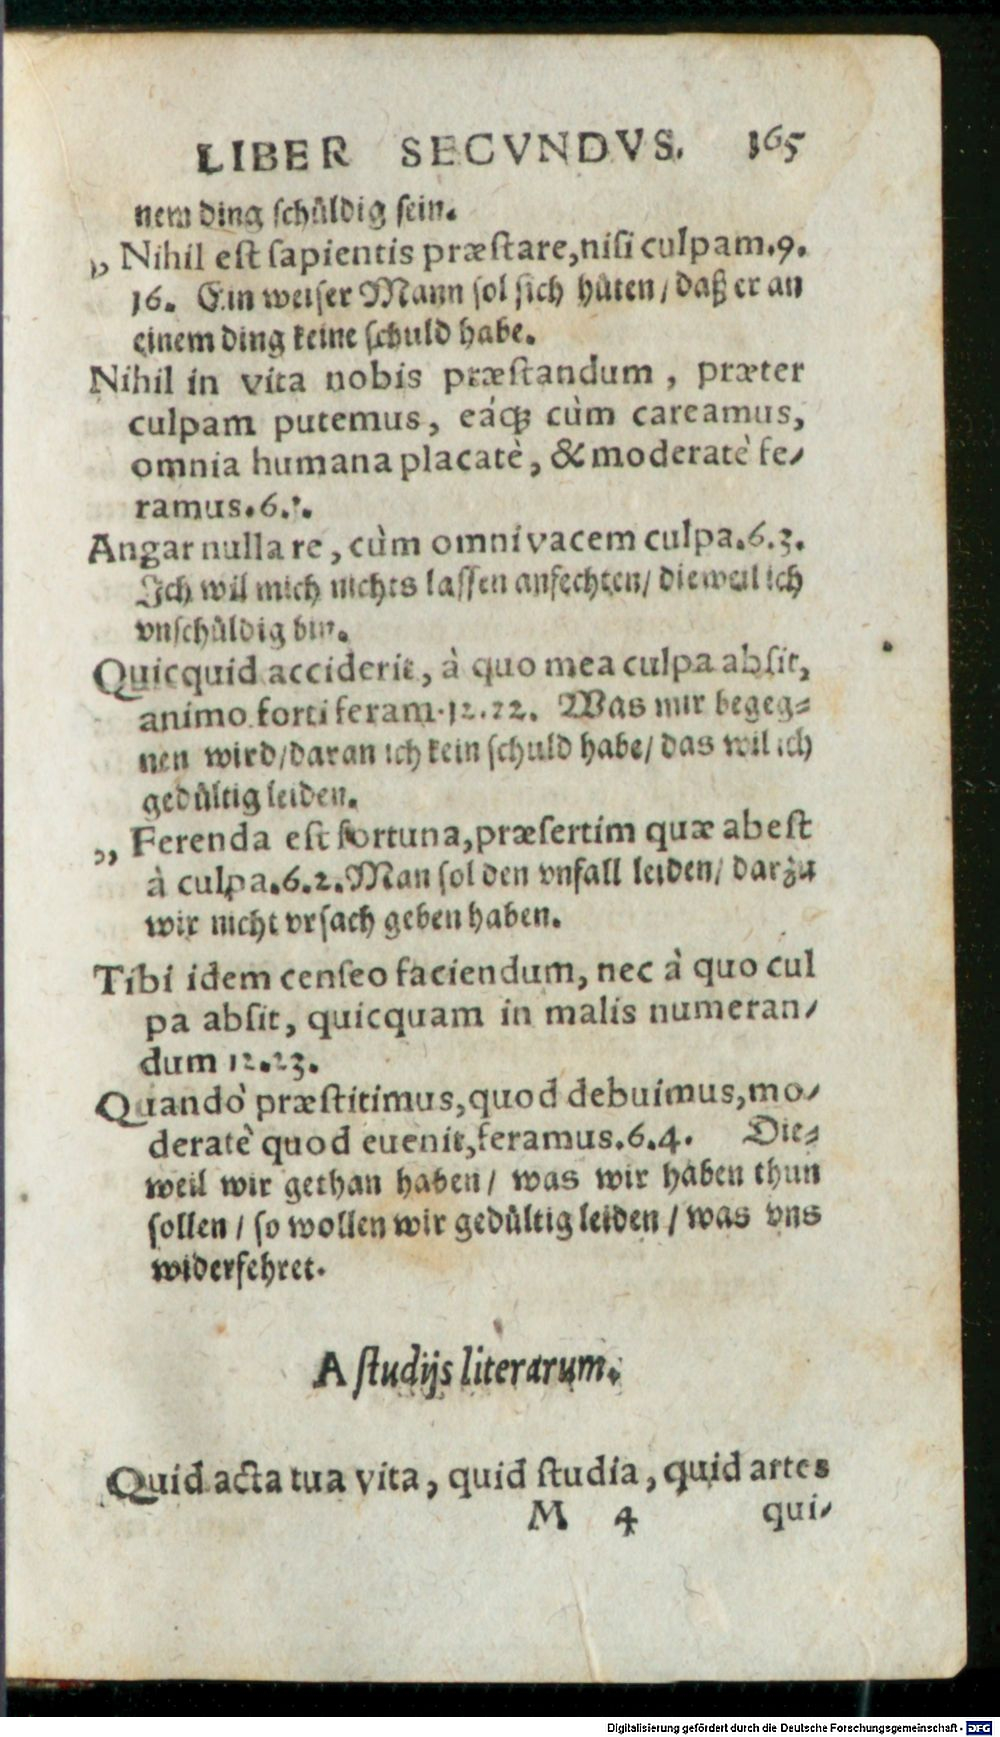 LIBER SECVNDVS. 165
nem ding schůldig sein.
„ Nihil est sapientis præstare, nisi culpam. 9.
16. Ein weiser Mann sol sich hůten / daß er an
einem ding keine schuld habe.
Nihil in vita nobis præstandum, præter
culpam putemus, eáq́; cùm careamus,
omnia humana placatè, & moderatè fe-
ramus. 6. 1.
Angar nulla re, cùm omni vacem culpa. 6. 3.
Ich wil mich nichts lassen anfechten / dieweil ich
vnschůldig bin.
Quicquid acciderit, à quo mea culpa absit,
animo forti feram. 12. 22. Was mir begeg-
nen wird / daran ich kein schuld habe / das wil ich
gedůltig leiden.
„ Ferenda est fortuna, præsertim quæ abest
à culpa. 6. 2. Man sol den vnfall leiden / darzu
wir nicht vrsach geben haben.
Tibi idem censeo faciendum, nec à quo cul
pa absit, quicquam in malis numeran-
dum 12. 23.
Quandò præstitimus, quod debuimus, mo-
deratè quod euenit, feramus. 6. 4. Die-
weil wir gethan haben / was wir haben thun
sollen / so wollen wir gedůltig leiden / was vns
widerfehret.
A studijs literarum.
Quid acta tua vita, quid studia, quid artes
M 4 qui-
Digitalisierung gefördert durch die Deutsche Forschungsgemeinschaft - DFG